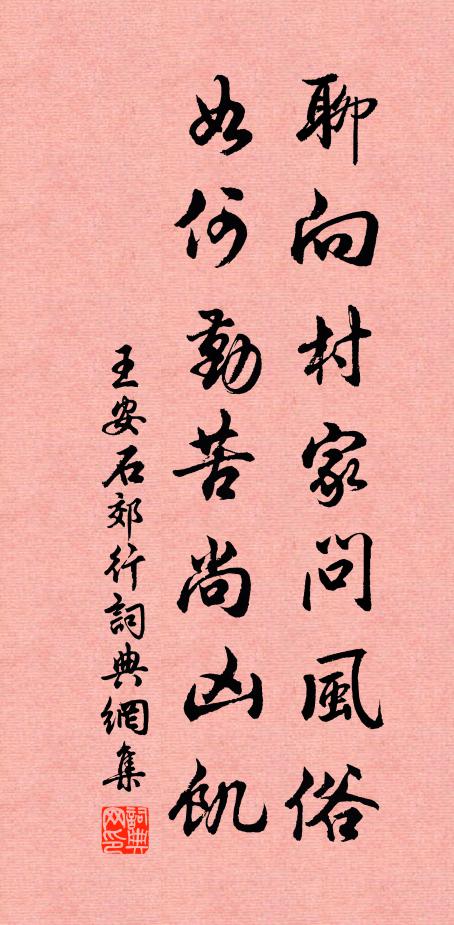 聊向村家問風俗
如何勤苦尚凶飢
王安石郊行詞典網集
詞典網印